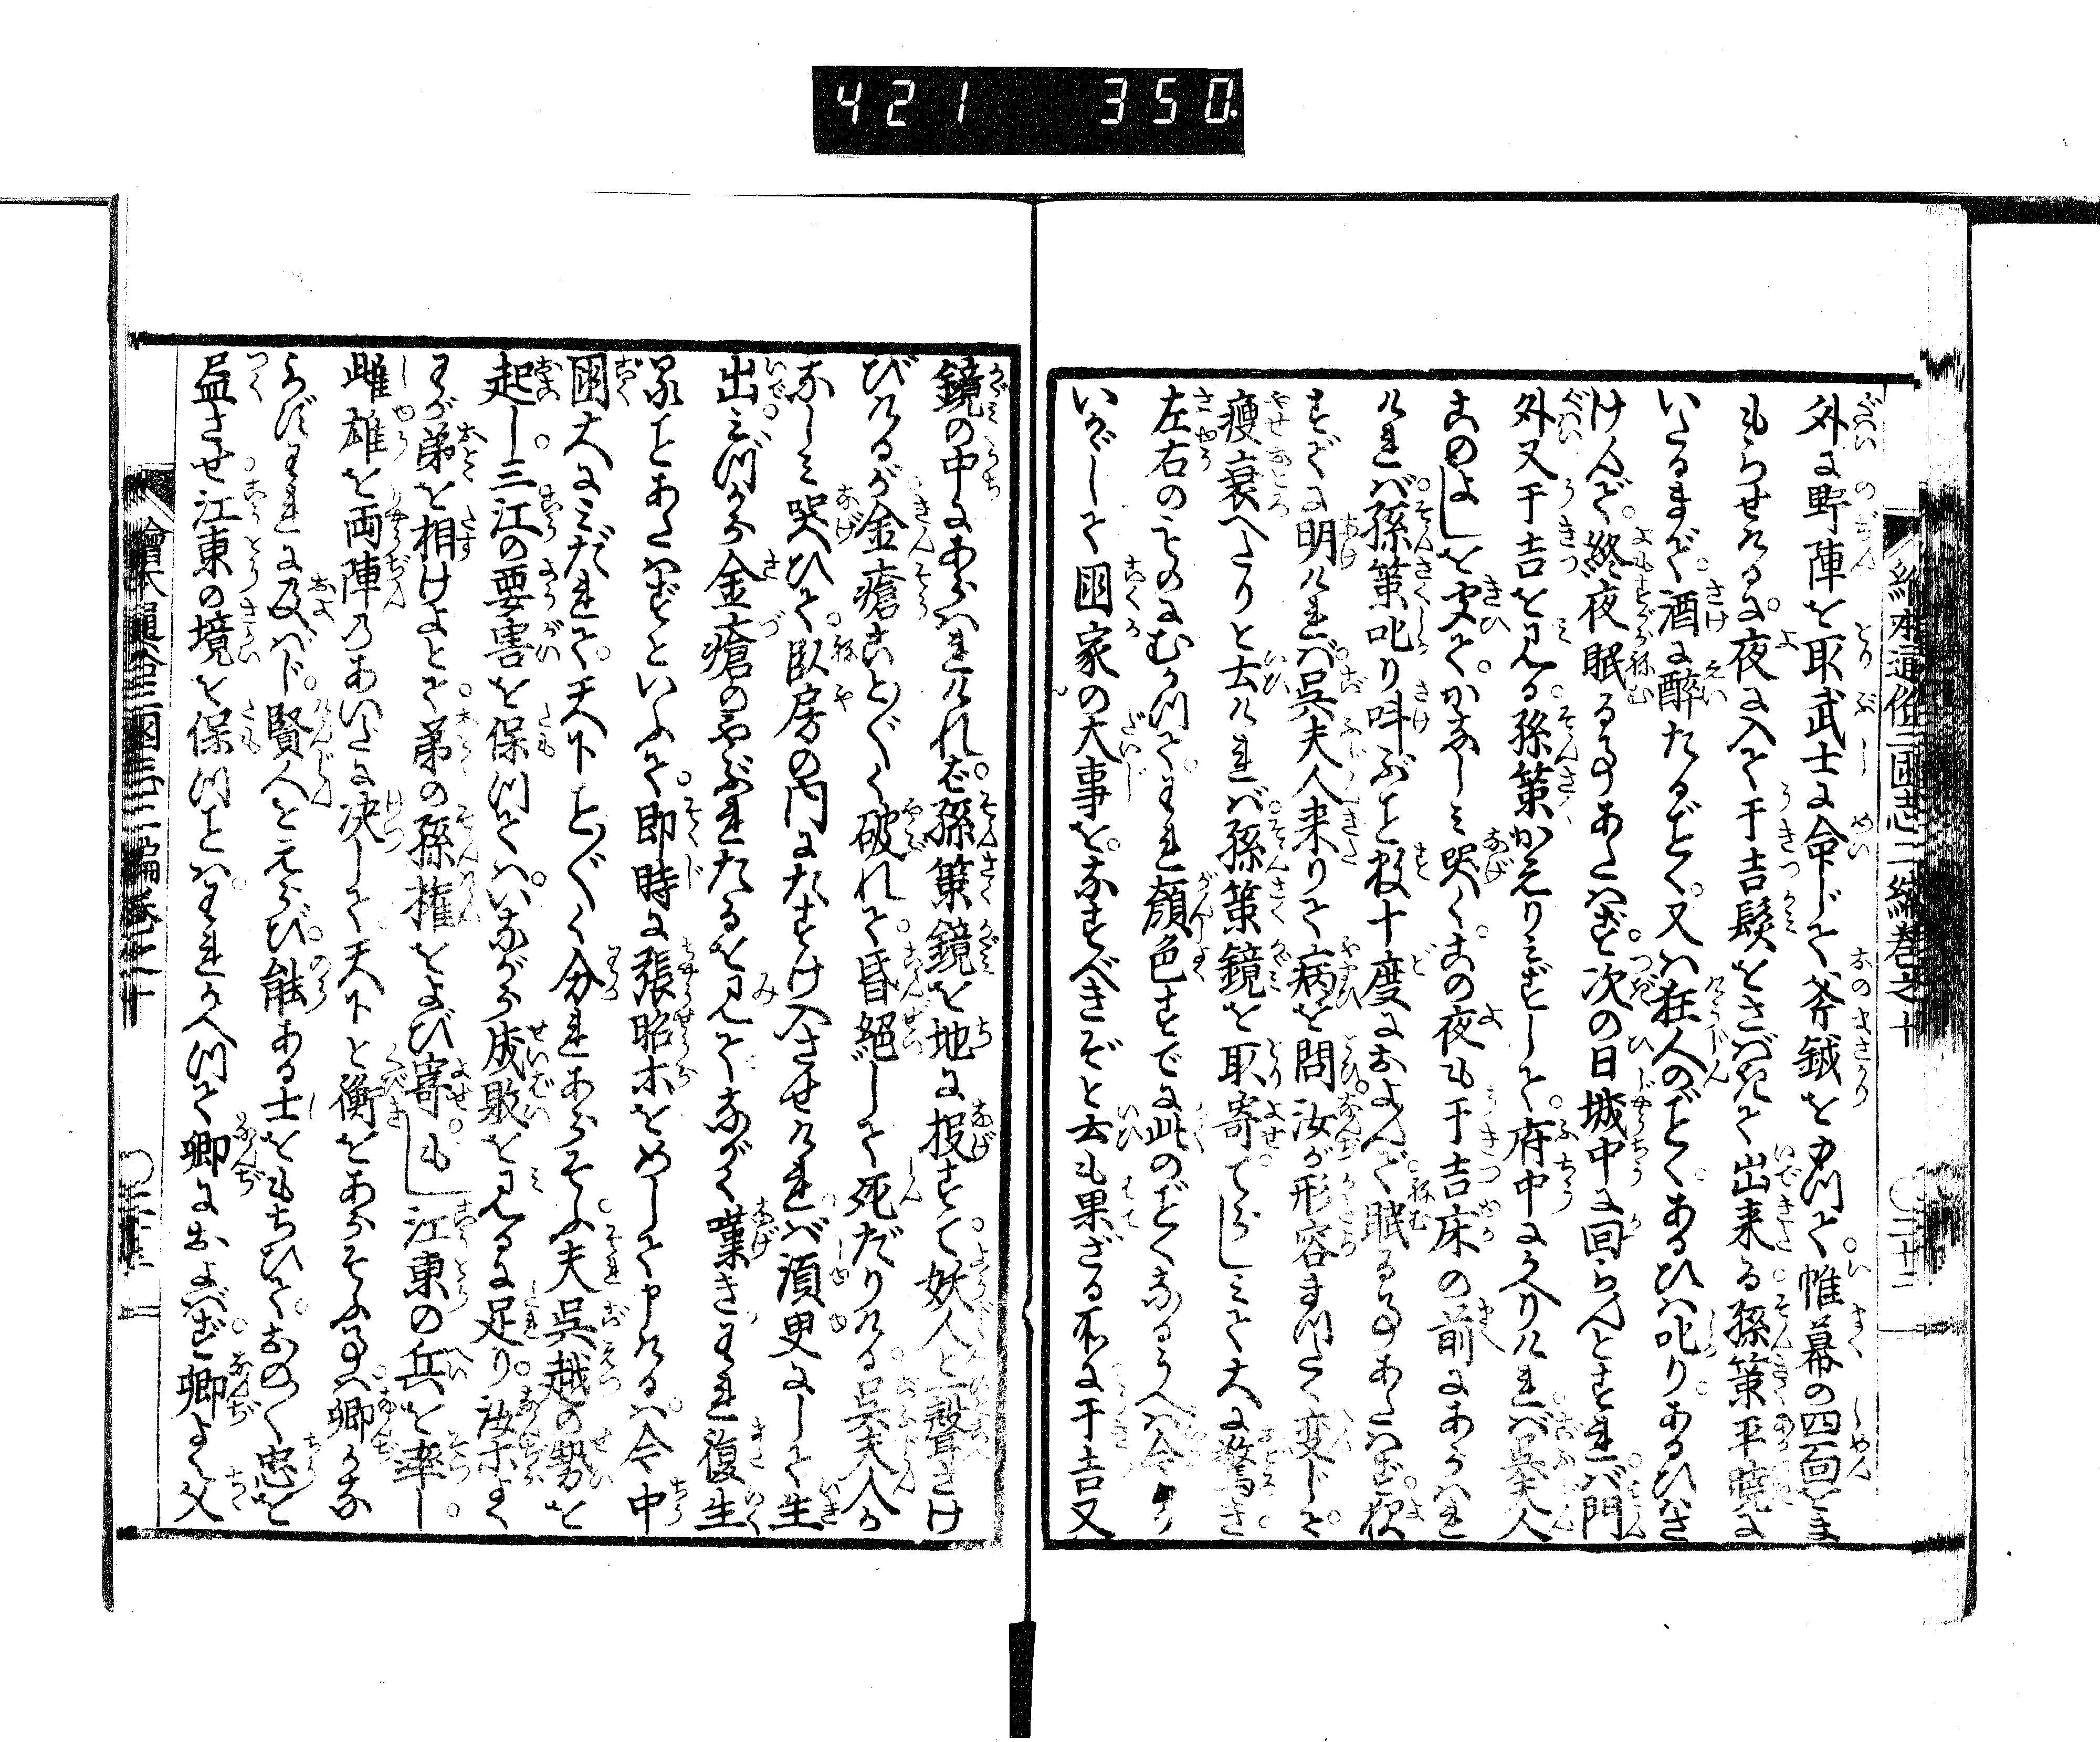 421 350
絵本通俗三国志二編巻之十 〇三十二
外に野陣を取武士に命じて斧鉞をもつて帷幕の四面をま
もらせける夜に入て于吉髪をさばきて出来る孫策平暁に
いたるまで酒に酔たるごとく又ハ狂人のごとくあるひハ叱りあるひハさ
けんで終夜眠る事あたハず次の日城中に回らんとすれバ門
外又于吉を見る孫策かえりみずして府中に入りけれバ呉夫人
このよしを聞てかなしみ哭くこの夜も于吉床の前にあらハれ
けれバ孫策叱り叫ぶこと数十度におよんで眠る事あたハず夜
すでに明けれバ呉夫人来りて病を問汝が形容まつたく変じて
痩衰へたりと云けれバ孫策鏡を取寄てらしミて大に驚き
左右のものにむかつてわれ顔色すでに此のごとくなるうへハ今
いかゞして国家の大事をなすべきぞと云も果ざる所に于吉又
鏡の中にあらハれけれバ孫策鏡を地に投すて妖人と一聲さけ
びけるが金瘡ことごとく破れて昏絶して死だりける呉夫人か
なしミ哭ひて臥房の内にたすけ入させけれバ須臾にして生
出ミづから金瘡のやぶれたるを見てながく嘆きわれ復生
ることあたハずといふて即時に張昭等をめして申けるハ今中
国大にミだれて天下ことごとく分れあらそふ夫呉越の勢を
起し三江の要害を保つてハいながら成敗を見るに足り汝等よく
わが弟を相けよとて弟の孫権をよび寄もし江東の兵を率し
雌雄を両陣のあいだに決して天下と衡をあらそふ事ハ卿かな
らずわれに及バじ賢人をえらび能ある士をもちひておのおの忠を
盡させ江東の境を保つことハわれかへつて卿におよバず卿よく父
繪本通俗三國志二編巻之十